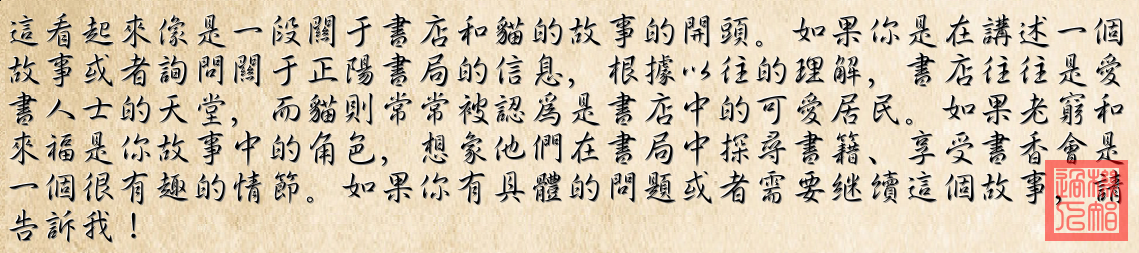 這看起來像是一段關于書店和貓的故事的開頭。如果你是在講述一個
故事或者詢問關于正陽書局的信息，根據以往的理解，書店往往是愛
書人士的天堂，而貓則常常被認爲是書店中的可愛居民。如果老窮和
來福是你故事中的角色，想象他們在書局中探尋書籍、享受書香會是
一個很有趣的情節。如果你有具體的問題或者需要继續這個故事，請
告訴我！